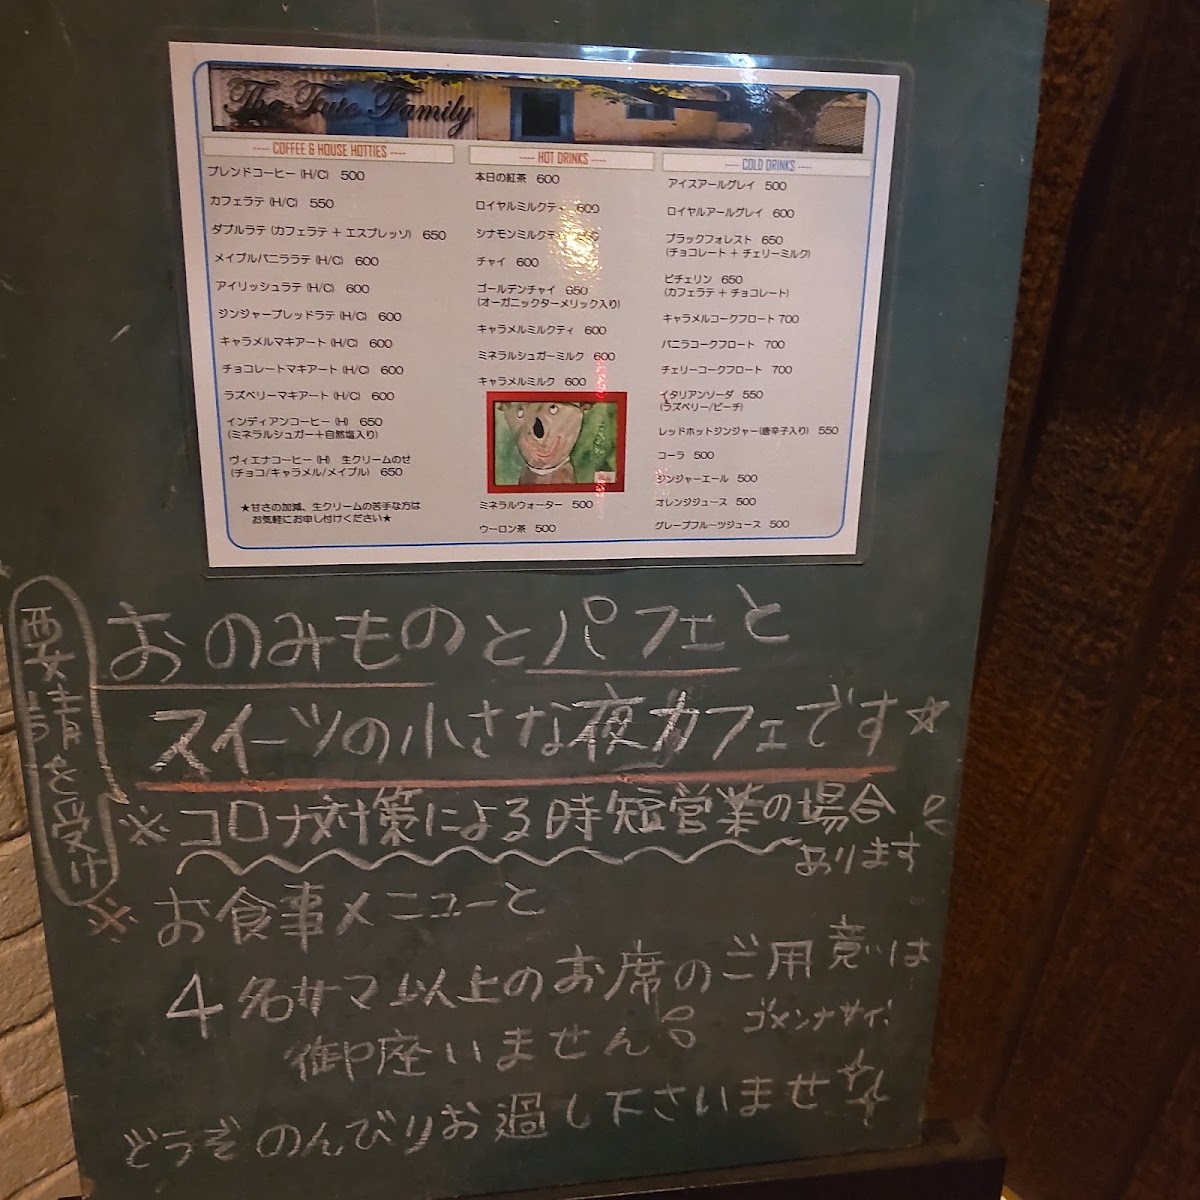 The Fute Family
---- COFFEE & HOUSE HOTTIES ----
ブレンドコーヒー (H/C) 500
カフェラテ (H/C) 550
ダブルラテ (カフェラテ + エスプレッソ) 650
メイプルバニララテ (H/C) 600
アイリッシュラテ (H/C) 600
ジンジャーブレッドラテ (H/C) 600
キャラメルマキアート (H/C) 600
チョコレートマキアート (H/C) 600
ラズベリーマキアート (H/C) 600
インディアンコーヒー (H) 650
(ミネラルシュガー+自然塩入り)
ヴィエナコーヒー (H) 生クリームのせ
(チョコ/キャラメル/メイプル) 650
★甘さの加減、生クリームの苦手な方は
お気軽にお申し付けください★
---- HOT DRINKS ----
本日の紅茶 600
ロイヤルミルクティ 600
シナモンミルクティ
チャイ 600
ゴールデンチャイ 650
(オーガニックターメリック入り)
キャラメルミルクティ 600
ミネラルシュガーミルク 600
キャラメルミルク 600
ミネラルウォーター 500
ウーロン茶 500
---- COLD DRINKS ----
アイスアールグレイ 500
ロイヤルアールグレイ 600
ブラックフォレスト 650
(チョコレート + チェリーミルク)
ビチェリン 650
(カフェラテ + チョコレート)
キャラメルコークフロート 700
バニラコークフロート 700
チェリーコークフロート 700
イタリアンソーダ 550
(ラズベリー/ピーチ)
レッドホットジンジャー(唐辛子入り) 550
コーラ 500
ジンジャーエール 500
オレンジジュース 500
グレープフルーツジュース 500
おのみものとパフェと
スイーツの小さな夜カフェです☆
要請を受け
※コロナ対策による時短営業の場合
あります
※お食事メニューと
4名サマ以上のお席のご用意は
御座いません。ゴメンナサイ!
どうぞのんびりお過し下さいませ☆